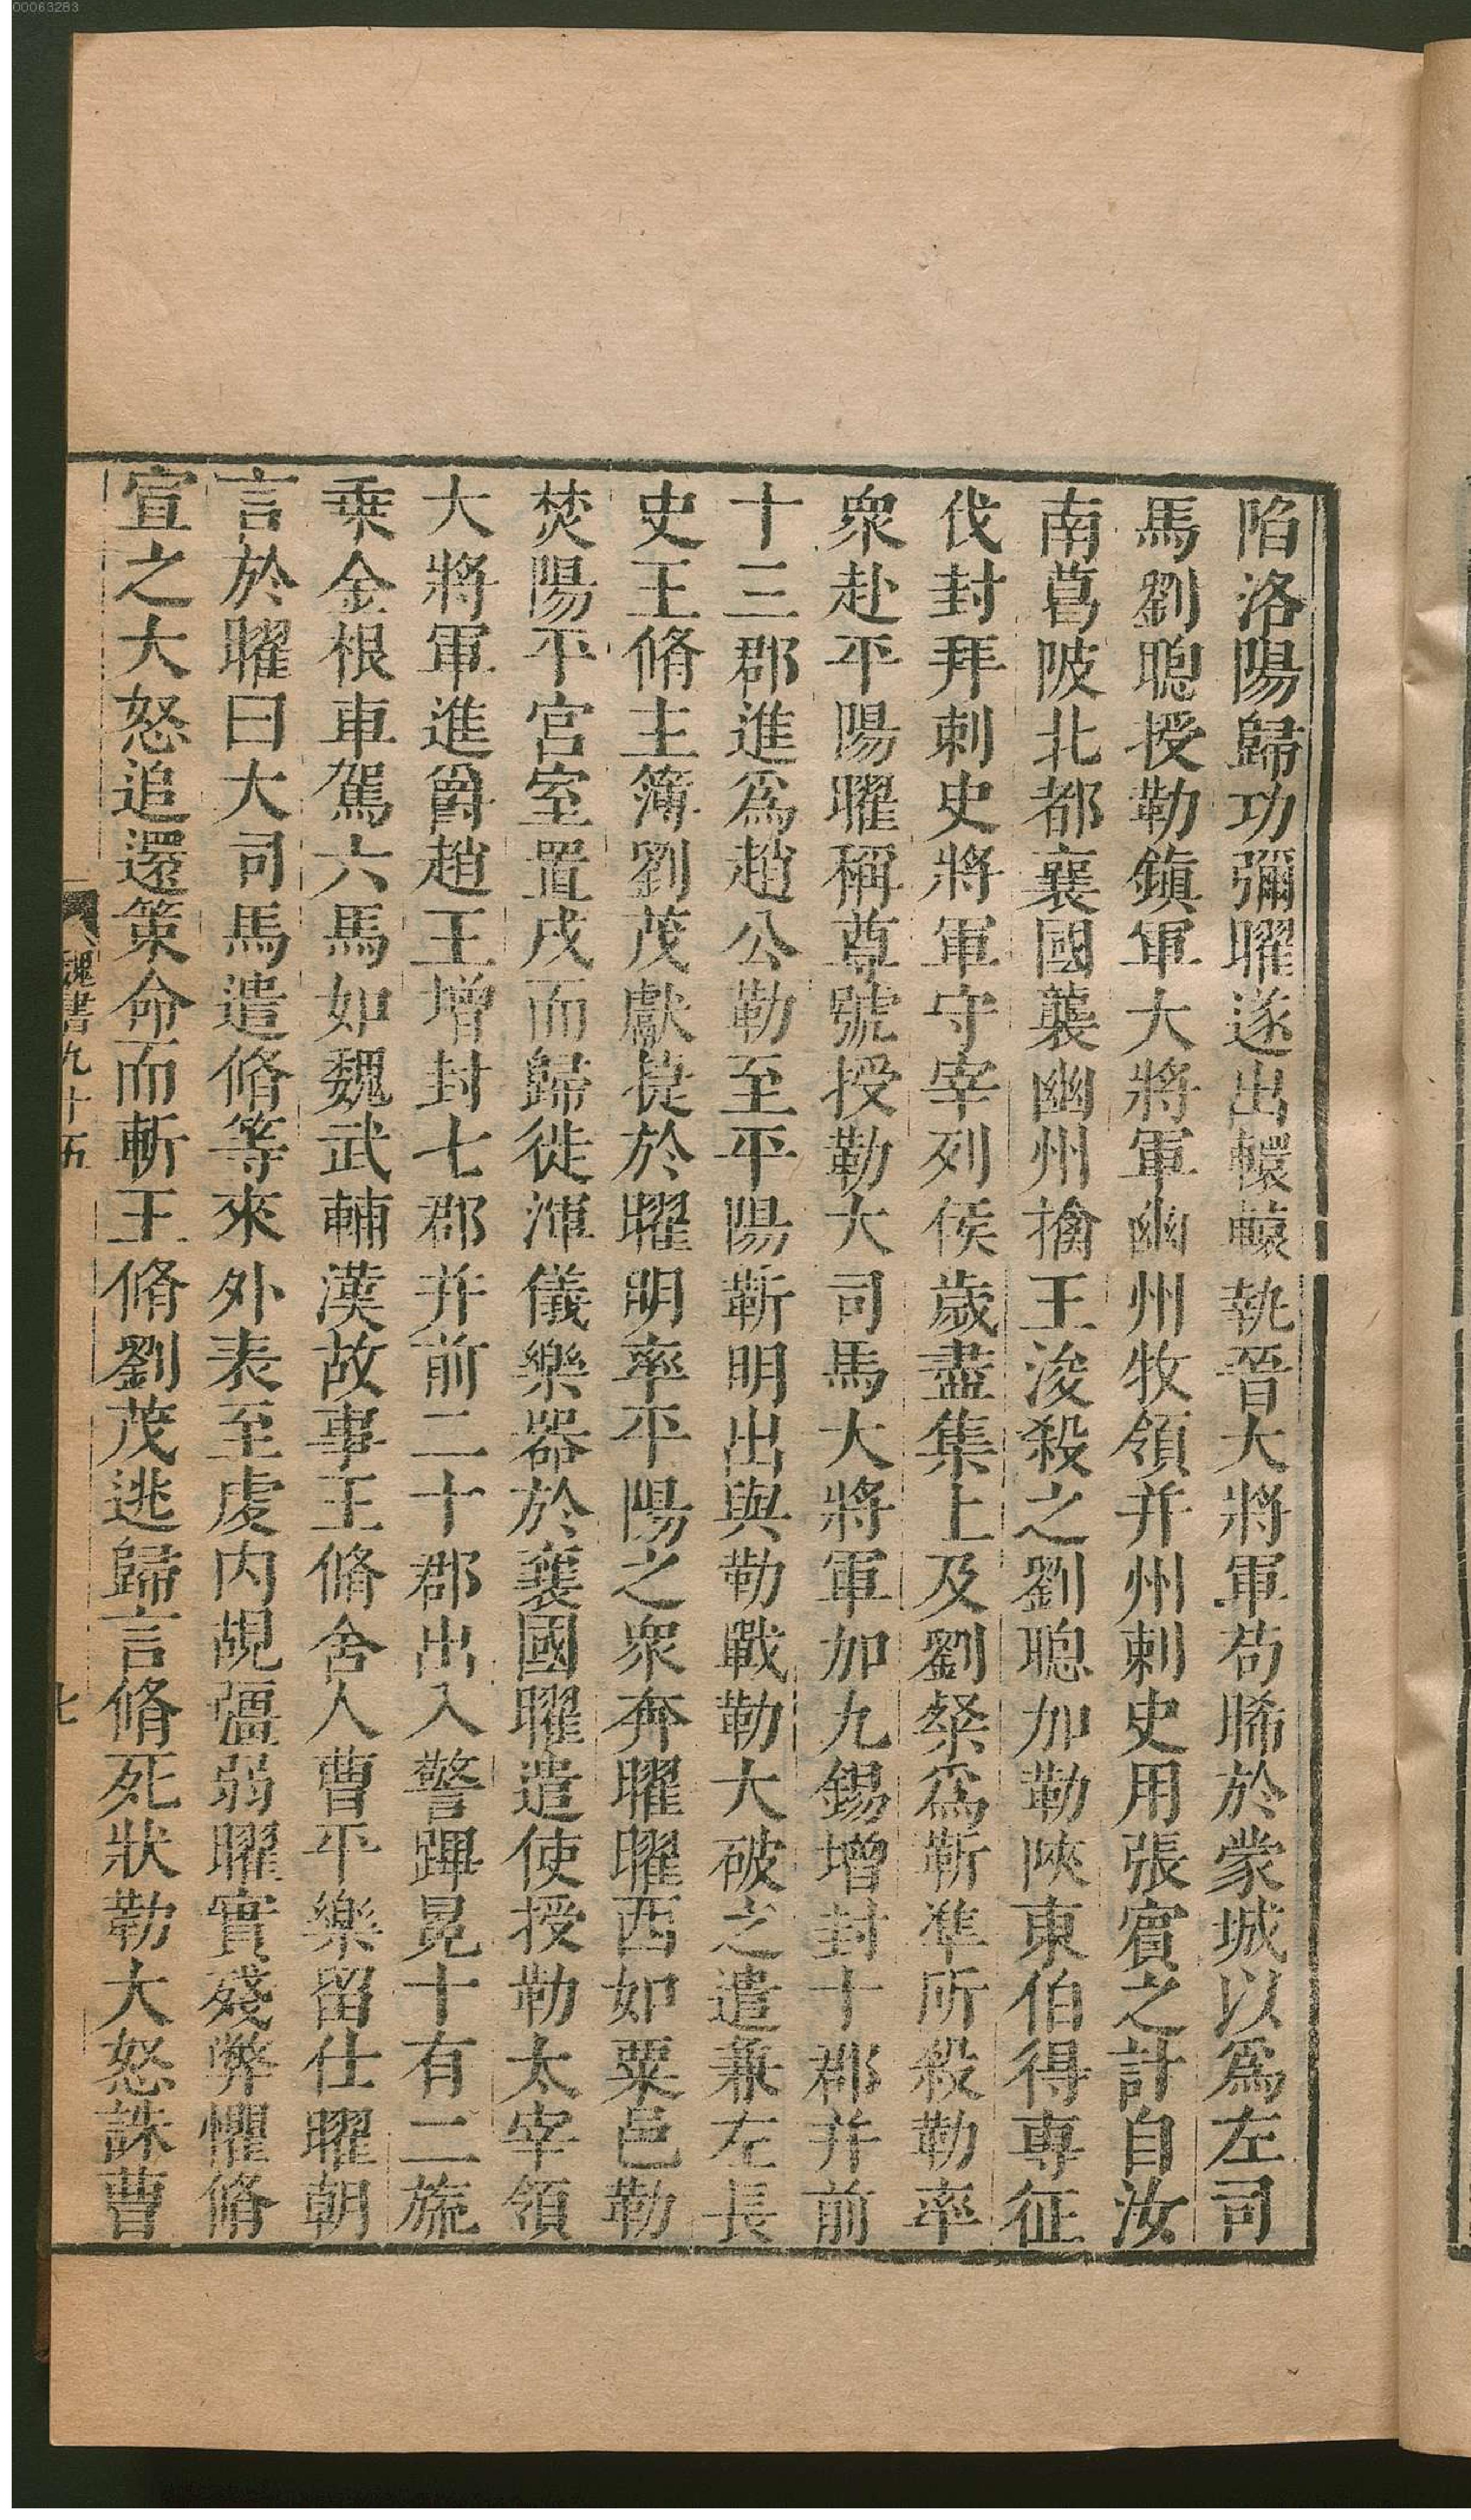 陷洛陽歸功彌曜遂出轘轅執晉大將軍苟晞於蒙城以爲左司
馬劉聰授勒鎮軍大將軍幽州牧領并州刺史用張賓之計自汝
南葛陂北都襄國襲幽州擒王浚殺之劉聰加勒陝東伯得專征
伐封拜刺史將軍守宰列侯歲盡集上及劉粲爲靳準所殺勒率
衆赴平陽曜稱尊號授勒大司馬大將軍加九錫增封十郡并前
十三郡進爲趙公勒至平陽靳明出與勒戰勒大破之遣兼左長
史王脩主簿劉茂獻捷於曜明率平陽之衆奔曜曜西如粟邑勒
焚平陽宮室置戍而歸徙渾儀樂器於襄國曜遣使授勒太宰領
大將軍進爵趙王增封七郡并前二十郡出入警蹕冕十有二旒
乘金根車駕六馬如魏武輔漢故事王脩舍人曹平樂留仕曜朝
言於曜曰大司馬遣脩等來外表至虔內覘彊弱曜實殘弊懼脩
宣之大怒追還策命而斬王脩劉茂逃歸言脩死狀勒大怒誅曹
魏書九十五
七
00063283